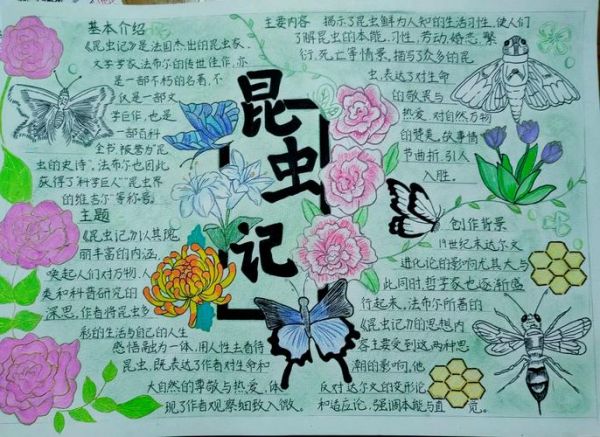 昆虫记
基本介绍
《昆虫记》是法国杰出的昆虫家、
文学家法布尔的传世佳作,亦
是一部不朽的名著,不
仅是一部文
学巨作,也是
一部百科
全书,被誉为"昆
虫的史诗",法布尔也因此
获得了"科学巨人""昆虫界
的维吉尔"等称号。
主题
《昆虫记》以其瑰
丽丰富的内涵,
唤起人们对万物、人
类和科普研究的
深思,作者将昆虫多
彩的生活与自己的人生
感悟融为一体,用人性去看待
昆虫,既表达了作者对生命和
大自然的尊敬与热爱,体
现了作者观察细致入微。
主要内容 揭示了昆虫鲜为人知的生活习性,使人们
了解昆虫的本能、习性、劳动、婚恋、繁
衍、死亡等情景,描写了众多的昆
虫,表达了对生命
的敬畏与
热爱,对自然万物
的赞美,故事情
节曲折,引人
入胜。
创作背景
19世纪末达尔文
进化论的影响尤其大,与
此同时,哲学家也逐渐盛
行起来,法布尔所著的
《昆虫记》的思想内
容主要受到这两种思
潮的影响,他
反对达尔文的变形论
和适应论,强调本能与直
觉。